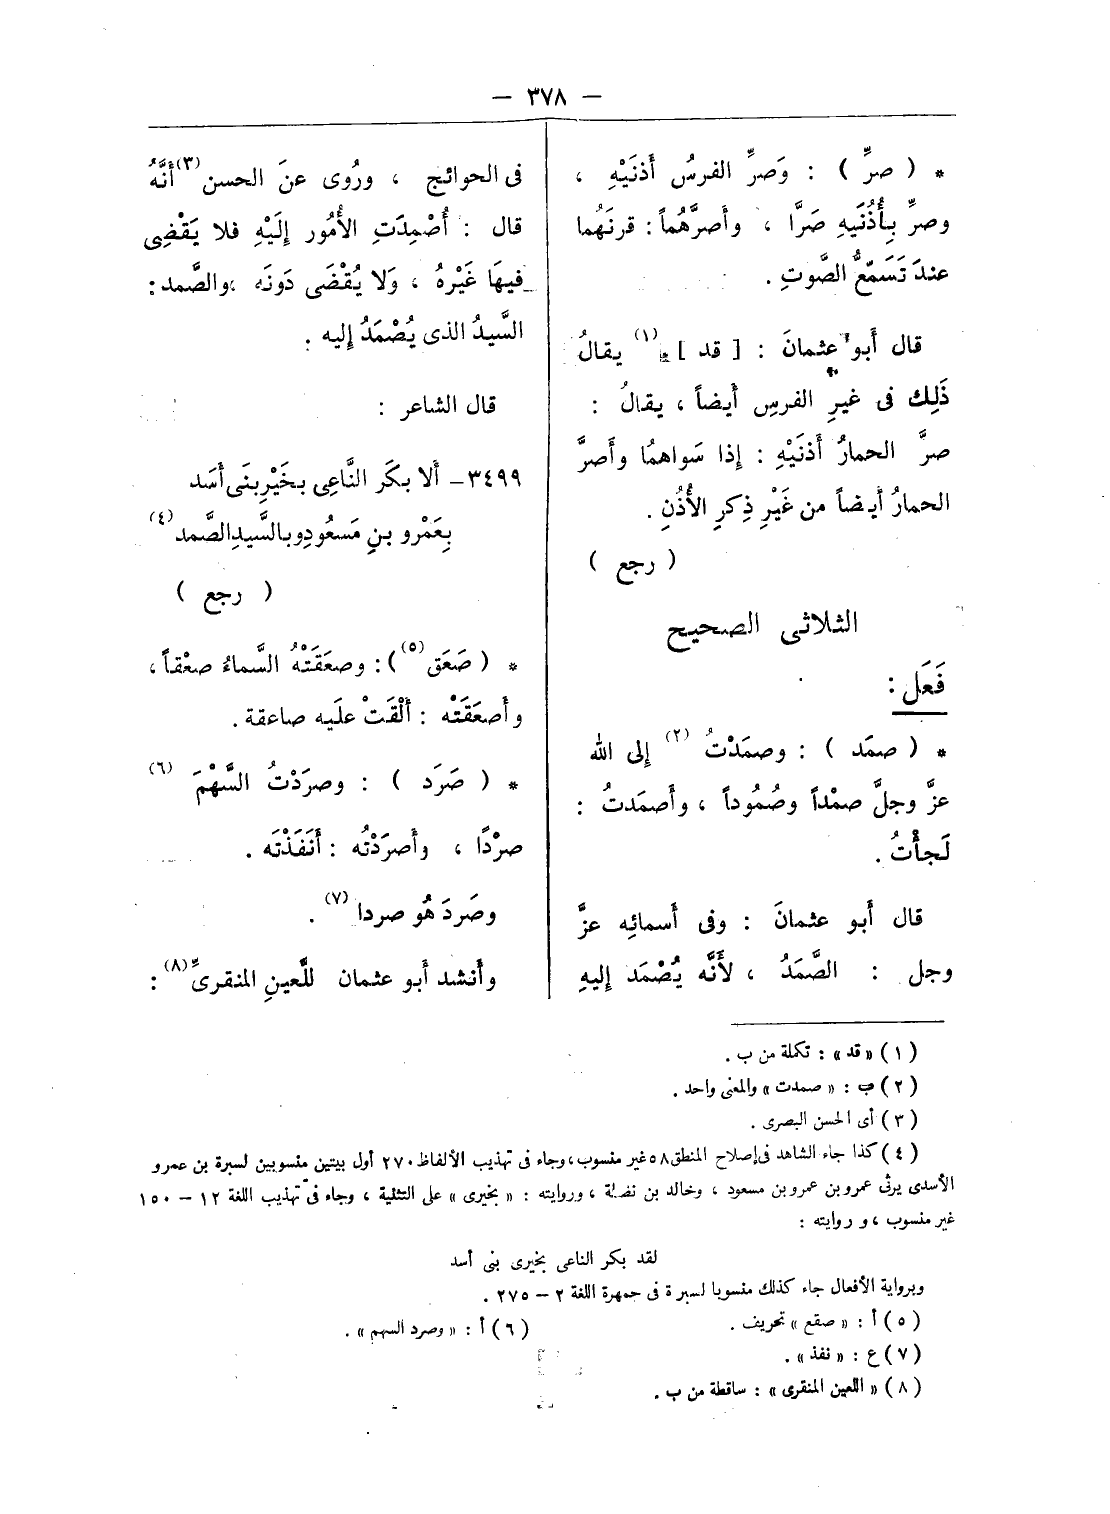 — ٣٧٨ —
* ( صرِّ ) : وَصرِّ الفرسُ أذنَيْهِ ،
وصرِّ بِأُذُنَيهِ صَرَّا ، وأصرَّهُماً : قرنَهُما
عندَ تَسَمّعُّ الصَّوتِ .
قال أَبو عثمانَ : [ قد ] (١) يقالُ
ذَلِك فى غيرِ الفرسِ أَيضاً ، يقالُ :
صرَّ الحمارُ أذنَيْهِ : إذا سَواهمُا وأَصرَّ
الحمارُ أيضاً من غَيْرِ ذِكرِ الأُذُنِ .
( رجع )
الثلاثى الصحيح
فَعَل :
* ( صمَد ) : وصمَدْتُ (٢) إلى الله
عزَّ وجلَّ صمْداً وصُمُوداً ، وأصمَدتُ :
لَجأْتُ .
قال أَبو عثمانَ : وفى أَسمائِه عزَّ
وجل : الصَّمَدُ ، لأَنَّه يُصْمَد إليهِ
فى الحوائج ، ورُوى عنَ الحسن (٣) أنَّهُ
قال : أُصْمِدَتِ الأُمُور إلَيْهِ فلا يَقْضِى
فيهَا غَيْرهُ ، وَلا يُقْضَى دَونَه ، والصَّمد :
السَّيدُ الذى يُصْمَدُ إليه .
قال الشاعر :
٣٤٩٩ – ألا بكَر النَّاعِى بخَيْرِبنَى أَسَد
بِعَمْرو بنِ مَسعُودِوبالسَّيدِالصَّمد (٤)
( رجع )
* ( صَعَق (٥) ) : وصعَقَتْهُ السَّماءُ صعْقاً ،
وأصعَقَتْه : أَلْقَتْ علَيه صاعقة .
* ( صَرَد ) : وصرَدْتُ السَّهْمَ (٦)
صرْدًا ، وأصرَدْتُه : أَنَفَذْتَه .
وصَردَ هُو صردا (٧) .
وأَنشد أبو عثمان للَّعينِ المنقرىِّ (٨) :
( ١ ) « قد » : تكملة من ب .
( ٢ ) ب : « صمدت » والمعنى واحد .
( ٣ ) أى الحسن البصرى .
( ٤ ) كذا جاء الشاهد فى إصلاح المنطق ٥٨ غير منسوب ، وجاء فى تهذيب الألفاظ ٢٧٠ أول بيتين منسوبين لسبرة بن عمرو
الأسدى يرثى عمرو بن عمرو بن مسعود ، وخالد بن نضلة ، وروايته : « بخيرى » على التثنية ، وجاء فى تهذيب اللغة ١٢ – ١٥٠
غير منسوب ، و روايته :
لقد بكر الناعى بخيرى بنى أسد
وبرواية الأفعال جاء كذلك منسوبا لسبرة فى جمهرة اللغة ٢ – ٢٧٥ .
( ٥ ) أ : « صقع » تحريف .
( ٦ ) أ : « وصرد السهم » .
( ٧ ) ع : « نفذ » .
( ٨ ) « اللعين المنقرى » : ساقطة من ب .